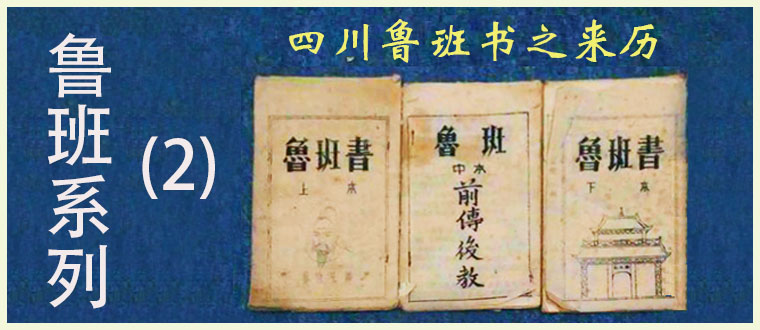 鲁班系列
(2)
四川鲁班书之来历
魯班書
上本
魯班
中本
前傳後教
魯班書
下本